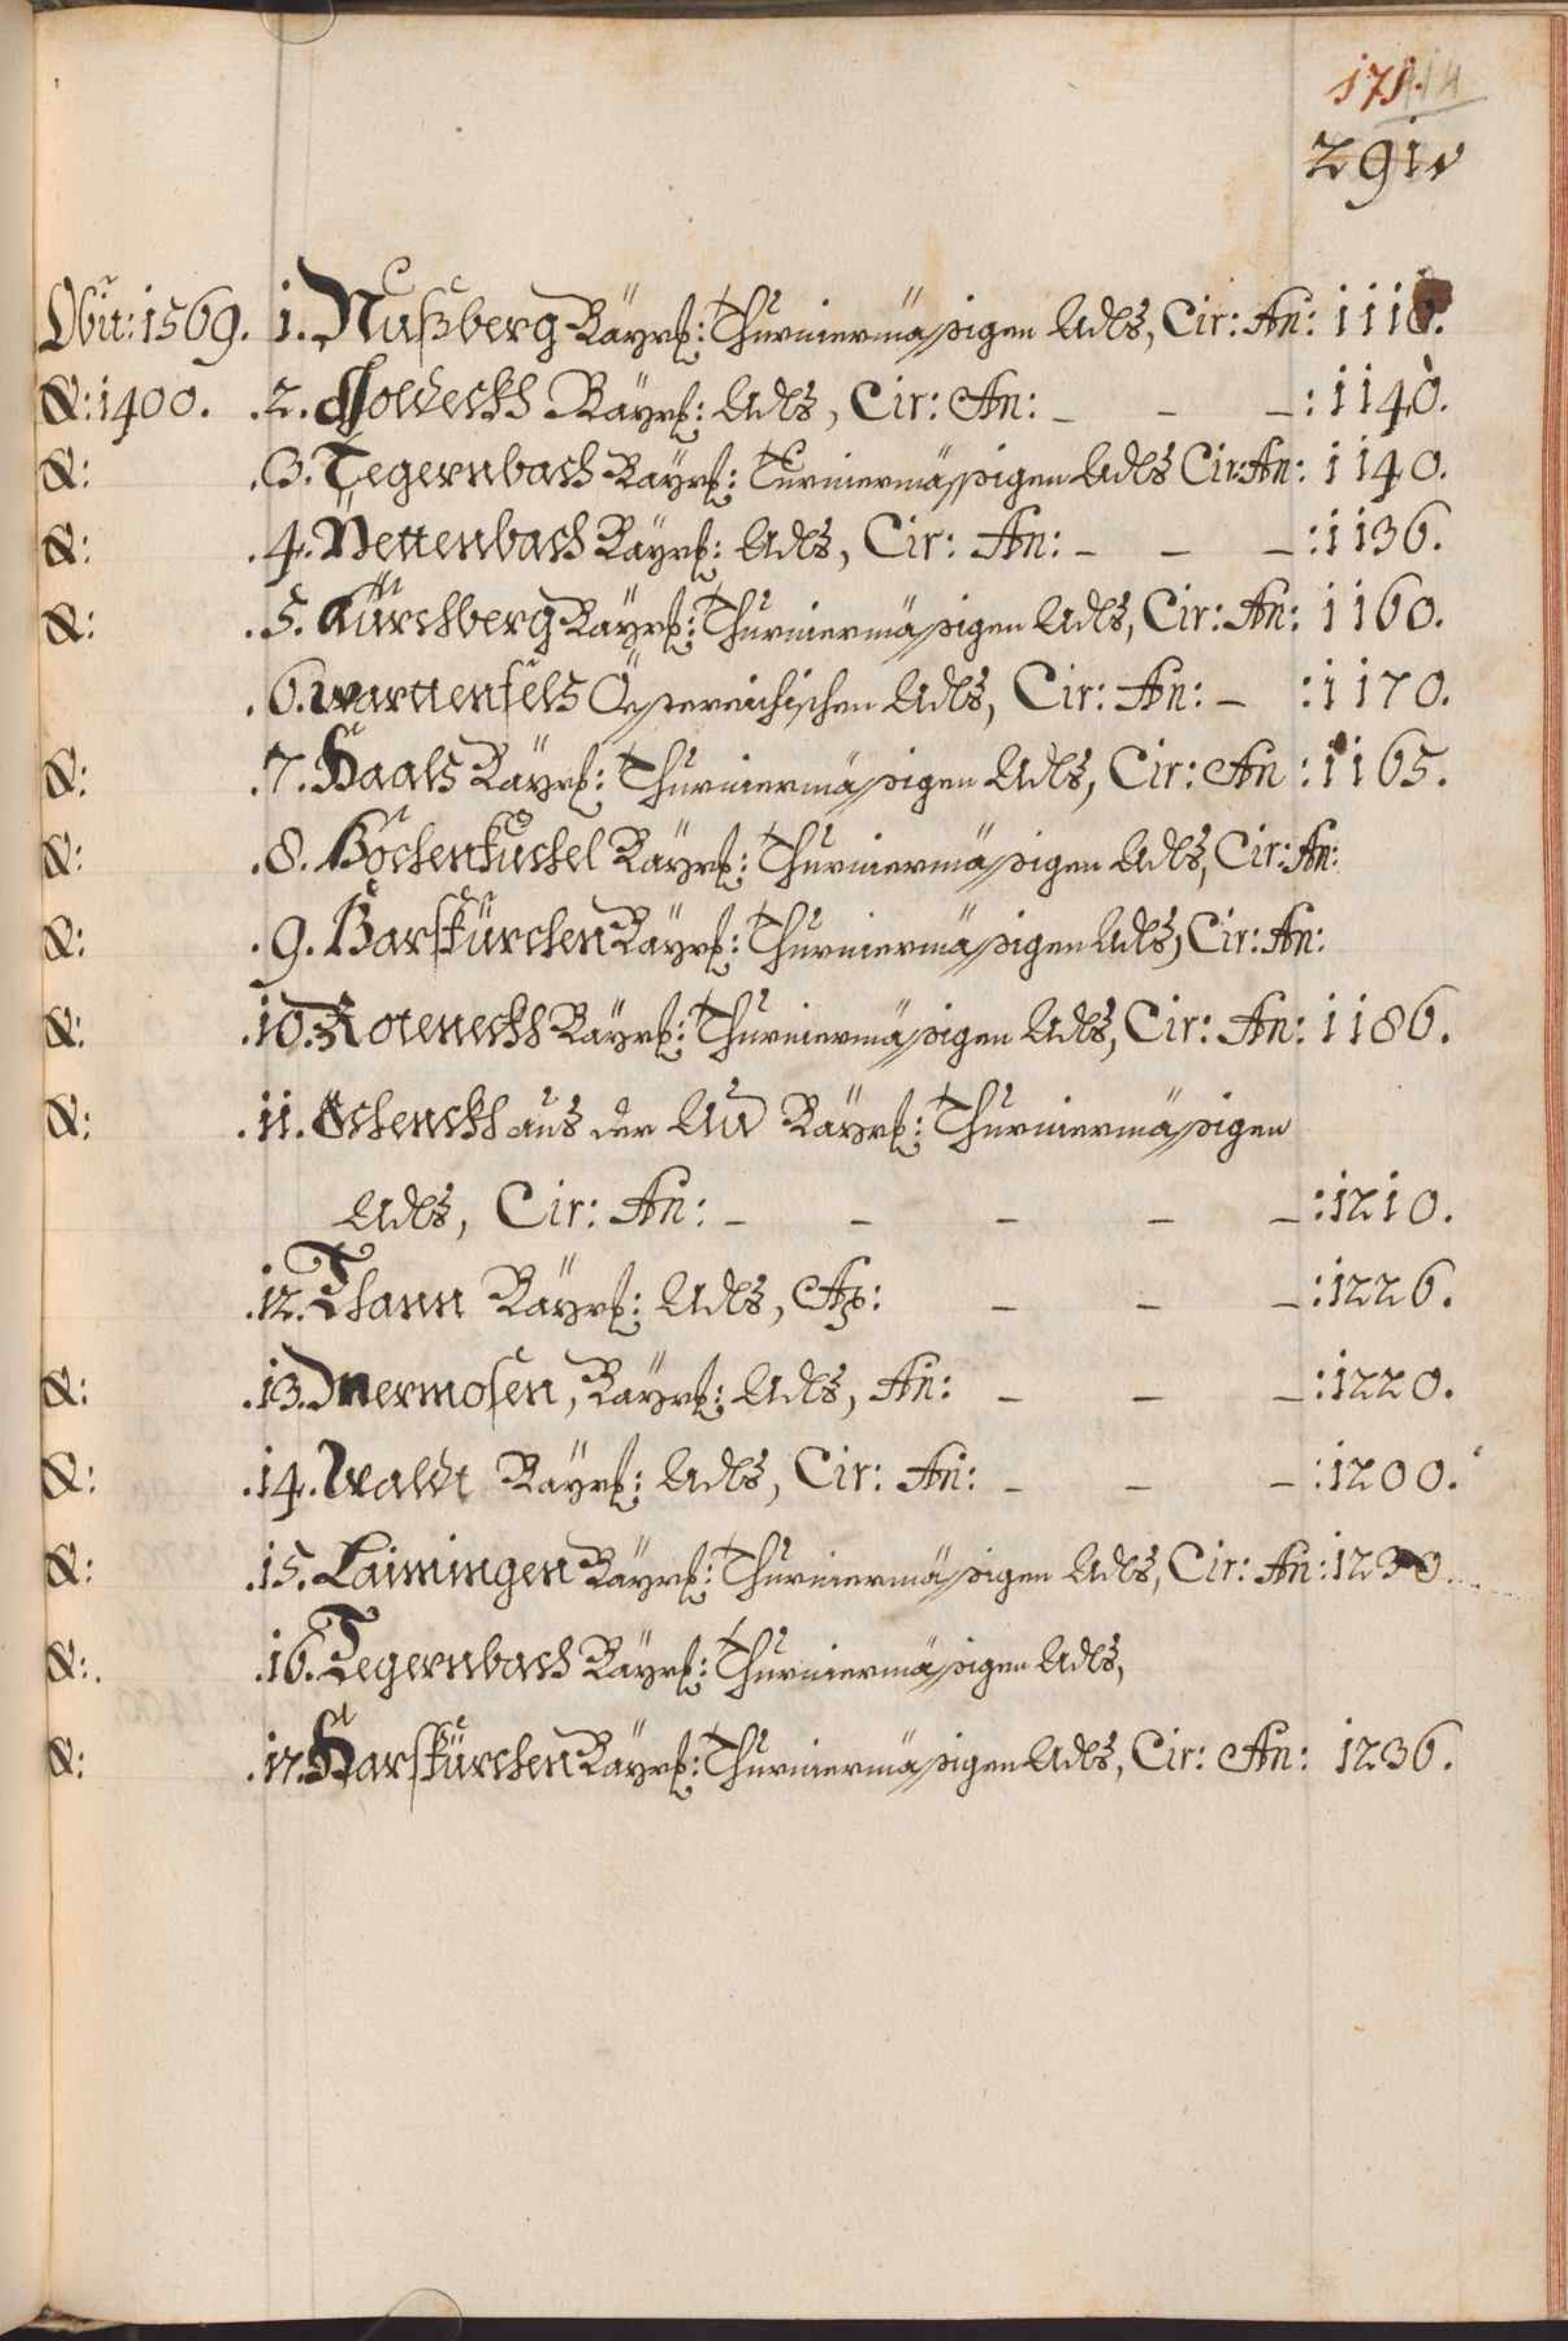 171.
291
Obiit: 1569. 1. Nußberg Bayrh: Thurniermäßigen Adls, Cir: An: 1110.
&: 1400. .2. Goldeckh Bayrh: Adls, Cir: An: – – –: 1140.
&: .3. Tegernbach Bayrh: Turniermäßigen Adls Cir: An: 1140.
&: .4. Nettenbach Bayrh: Adls, Cir: An: – – –: 1136.
&: .5. Kürchberg Bayrh: Thurniermäßigen Adls, Cir: An: 1160.
.6. Warttenfels Össterreichischen Adls, Cir: An: – : 1170.
&: .7. Haals Bayrh: Thurniermäßigen Adls, Cir: An: 1165.
&: .8. Bayrh: Thurniermäßigen Adls, Cir: An:
&: .9. Barskürchen Bayrh: Thurniermäßigen Adls, Cir: An:
&: .10. Roteneckh Bayrh: Thurniermäßigen Adls, Cir: An: 1186.
&: .11. Schenckh aus der Au Bayrh: Thurniermäßigen
Adls, Cir: An: – – – – –: 1210.
.12. Thann Bayrh: Adls, – – –: 1226.
&: .13. Jnermosen, Bayrh: Adls, An: – – –: 1220.
&: .14. Waldt Bayrh: Adls, Cir: An: – – –: 1200.
&: .15. Laimingen Bayrh: Thurniermäßigen Adls, Cir: An: 1230.
&: .16. Tegernbach Bayrh: Thurniermäßigen Adls,
&: .17. Harskürchen Bayrh: Thurniermäßigen Adls, Cir: An: 1236.